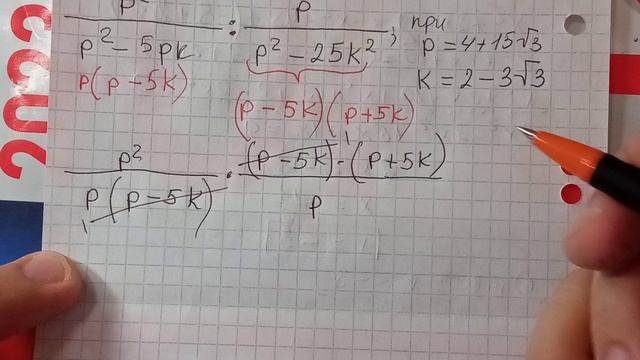 p² / (p² − 5pk) : p / (p² − 25k²) ; при
p = 4+15√3
k = 2 − 3√3
p(p − 5k)
(p − 5k)(p + 5k)
p² / (p(p − 5k)) · ((p − 5k) · (p + 5k)) / p